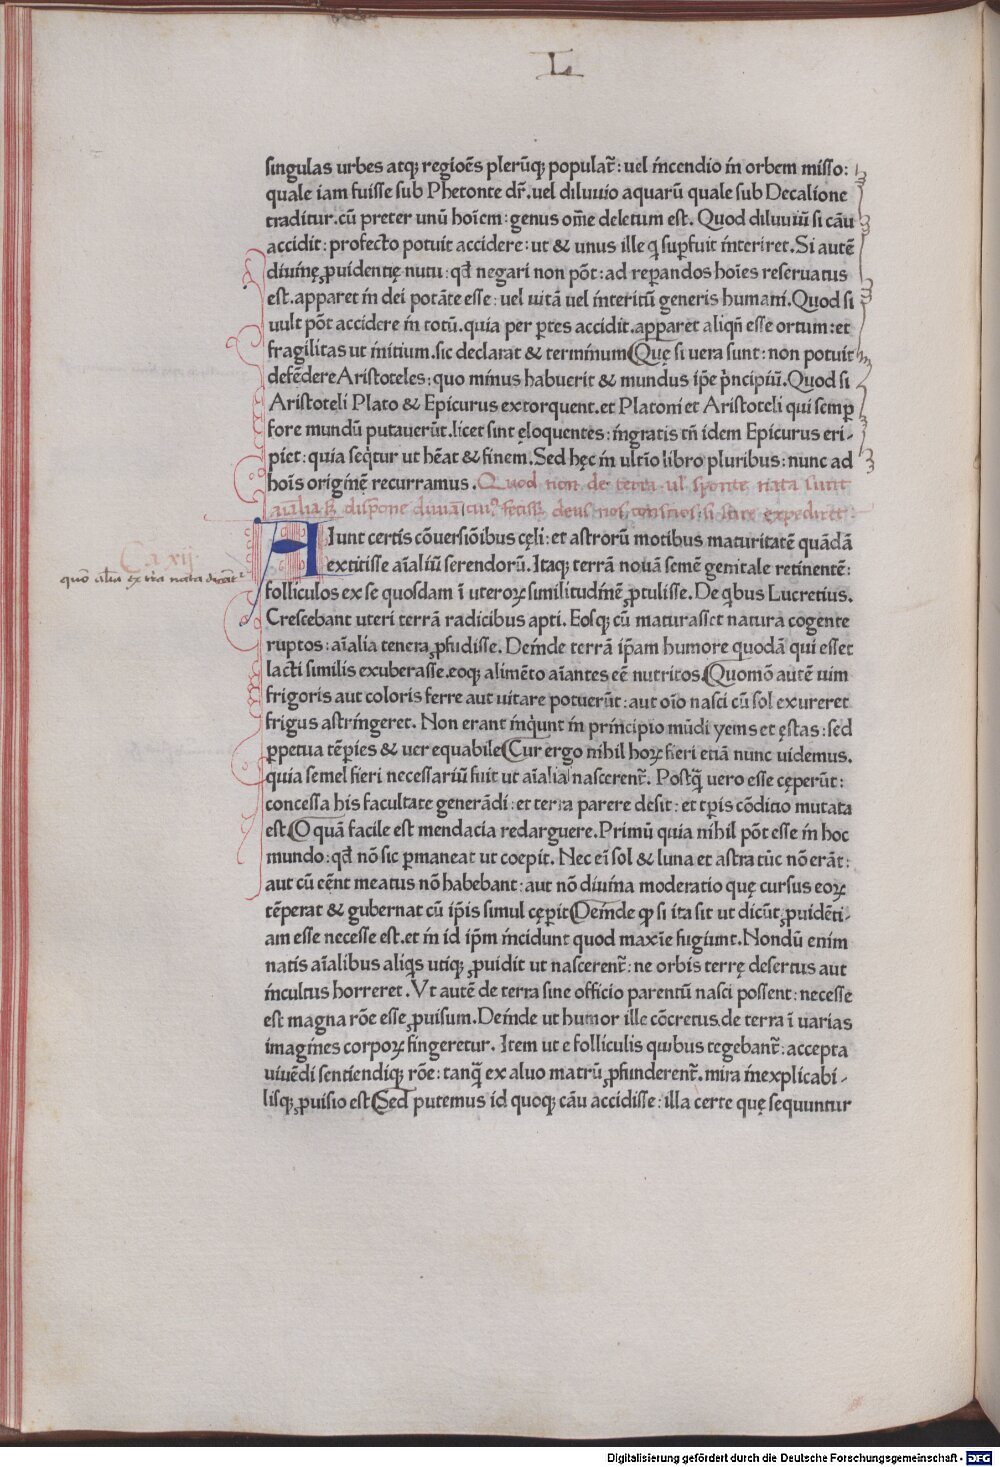 L
singulas urbes atqꝫ regiōēs plerūqꝫ populat᷑: uel incendio in orbem misso:
quale iam fuisse sub Phetonte dr̄.uel diluuio aquarū quale sub Decalione
traditur.cū preter unū hoīem:genus om̄e deletum est. Quod diluuiū si cāu
accidit:profecto potuit accidere:ut & unus ille q supfuit interiret.Si autē
diuinę ꝓuidentię nutu:qd̄ negari non pōt:ad reꝑandos hoīes reseruatus
est.apparet in dei potāte esse:uel uitā uel interitū generis humani.Quod si
uult pōt accidere in totū.quia per ꝑtes accidit.apꝑaret aliqn̄ esse ortum:et
fragilitas ut initium.sic declarat & terminum Quę si uera sunt:non potuit
defēdere Aristoteles:quo minus habuerit & mundus ip̄e pncipiū.Quod si
Aristoteli Plato & Epicurus extorquent.et Platoni et Aristoteli qui semꝑ
fore mundū putauerūt.licet sint ęloquentes:ingratis tn̄ idem Epicurus eri-
piet:quia seqtur ut hēat & finem.Sed hęc in ultīo libro pluribus:nunc ad
hoīs originē recurramus. Quod non de terra ul̄ sponte nata sunt
aīalia sꝫ dispone diuīa cui⁹ fecisꝫ deus nos conscios si scire expediret
Ca xij
quō aīlia ex tr̄a nata dicāt᷑
AIunt certis cōuersiōibus cęli:et astrorū motibus maturitatē quādā
extitisse aīaliū serendorū.Itaqꝫ terrā nouā semē genitale retinentē:
folliculos ex se quosdam ī uteroꝝ similitudinē ꝓtulisse.De qbus Lucretius.
Crescebant uteri terrā radicibus apti.Eosqꝫ cū maturasset natura cogente
ruptos:aīalia tenera ꝓfudisse. Deinde terrā ip̄am humore quodā qui esset
lacti similis exuberasse.eoqꝫ alimēto aīantes eē nutritos.Quomō autē uim
frigoris aut coloris ferre aut uitare potuerūt:aut oīo nasci cū sol exureret
frigus astringeret. Non erant inqunt in principio mūdi yems et ęstas:sed
ꝑpetua tēꝑies & uer equabile Cur ergo nihil hoꝝ fieri etiā nunc uidemus.
quia semel fieri necessariū fuit ut aīalia nascerent᷑. Postq̄ uero esse cęperūt:
concessa his facultate generādi:et terra parere desit:et tꝑis cōditio mutata
est.O quā facile est mendacia redarguere.Primū quia nihil pōt esse in hoc
mundo:qd̄ nō sic ꝑmaneat ut coepit. Nec eī sol & luna et astra tūc nō erāt:
aut cū eēnt meatus nō habebant:aut nō diuina moderatio quę cursus eoꝝ
tēperat & gubernat cū ip̄is simul cępit Deinde ꝙ si ita sit ut dicūt ꝓuidēti-
am esse necesse est.et in id ip̄m incidunt quod maxīe fugiunt.Nondū enim
natis aīalibus aliqs utiqꝫ ꝓuidit ut nascerent᷑:ne orbis terrę desertus aut
incultus horreret.Vt autē de terra sine officio parentū nasci possent:necesse
est magna rōe esse ꝓuisum.Deinde ut humor ille cōcretus.de terra ī uarias
imagines corpoꝝ fingeretur. Item ut e folliculis quibus tegebant᷑:accepta
uiuēdi sentiendiqꝫ rōe:tanq̄ ex aluo matrū ꝓfunderent᷑.mira inexplicabi-
lisqꝫ ꝓuisio est Sed putemus id quoqꝫ cāu accidisse:illa certe quę sequuntur
Digitalisierung gefördert durch die Deutsche Forschungsgemeinschaft - DFG